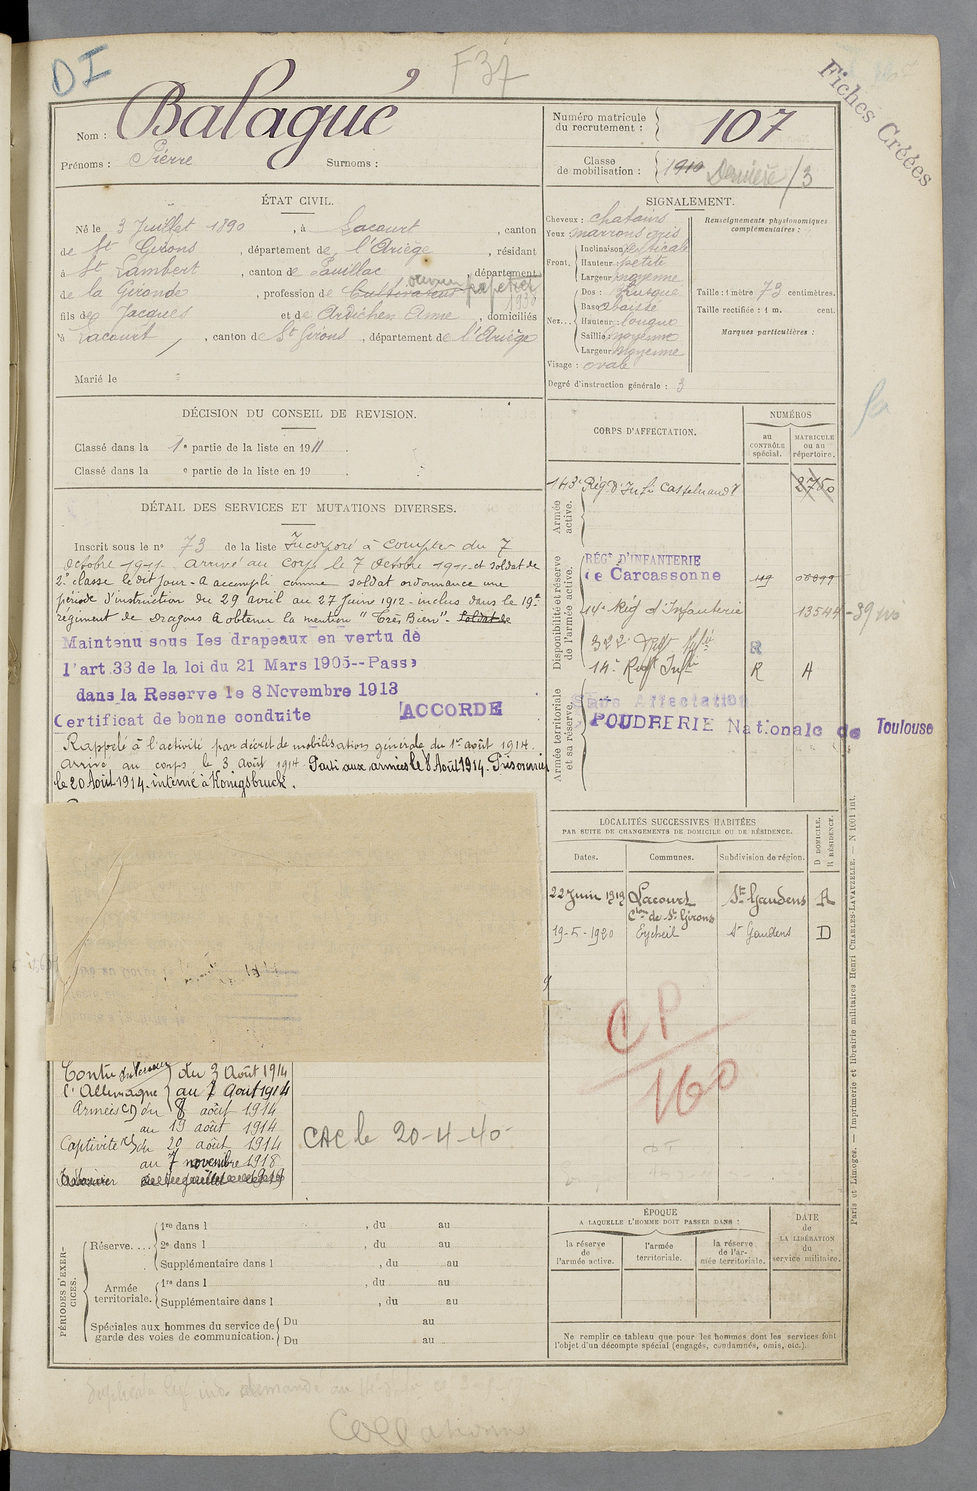 DI
F37
Fiches Créées
Nom : Balagué
Prénoms : Pierre Surnoms :
Numéro matricule du recrutement : 107
Classe de mobilisation : 1910 Dernière /3
ÉTAT CIVIL.
Né le 3 Juillet 1890, à Lacourt, canton
de St Girons, département de l'Ariège, résidant
à St Lambert, canton de Pauillac, département
ouvrier papetier
1930
de la Gironde, profession de Cultivateur
fils de Jacques et de Ardichen Anne, domiciliés
à Lacourt, canton de St Girons, département de l'Ariège
Marié le
SIGNALEMENT.
Cheveux : chatains
Yeux marrons gris
Front. Inclinaison verticale
Hauteur petite
Largeur moyenne
Nez... Dos : busqué
Base abaissé
Hauteur longue
Saillie moyenne
Largeur moyenne
Visage : ovale
Degré d'instruction générale : 3
Renseignements physionomiques complémentaires :
Taille : 1 mètre 73 centimètres.
Taille rectifiée : 1 m. cent.
Marques particulières :
DÉCISION DU CONSEIL DE REVISION.
Classé dans la 1e partie de la liste en 1911.
Classé dans la e partie de la liste en 19 .
DÉTAIL DES SERVICES ET MUTATIONS DIVERSES.
Inscrit sous le no 73 de la liste Incorporé à compter du 7
octobre 1911 arrivé au corps le 7 octobre 1911 et soldat de
2e classe le dit jour - A accompli comme soldat ordonnance une
période d'instruction du 29 avril au 27 Juin 1912 inclus dans le 19e
régiment de Dragons a obtenu la mention "Très Bien" - Soldat de
Maintenu sous les drapeaux en vertu de
l'art.33 de la loi du 21 Mars 1905--Passé
dans la Reserve le 8 Novembre 1913
Certificat de bonne conduite ACCORDE
Rappelé à l'activité par décret de mobilisation générale du 1er août 1914.
Arrivé au corps le 3 août 1914. Parti aux armées le 8 Août 1914. Prisonnier
le 20 Août 1914. interné à Königsbruck.
CORPS D'AFFECTATION.
NUMÉROS
au CONTRÔLE spécial.
MATRICULE ou au répertoire.
Armée active.
143e Rég. d'Infie Castelnaudy 2750
Disponibilité et réserve de l'armée active.
RÉGt D'INFANTERIE
de Carcassonne
14e Rég d'Infanterie 13544
322 Regt Infie R
14e Regt Infie R A
Armée territoriale et sa réserve.
Sans Affectation
POUDRERIE Nationale de Toulouse
LOCALITÉS SUCCESSIVES HABITÉES
PAR SUITE DE CHANGEMENTS DE DOMICILE OU DE RÉSIDENCE.
Dates. Communes. Subdivision de région. D DOMICILE. R RÉSIDENCE.
22 Juin 1919 Lacourt Cton de St Girons St Gaudens R
19-5-1920 Eycheil St Gaudens D
CP
160
Contre l'Allemagne du 3 Août 1914
au 7 Août 1914
Armées du 8 août 1914
au 19 août 1914
Captivité du 20 août 1914
au 7 novembre 1918
CAC le 20-4-40
PÉRIODES D'EXERCICES.
Réserve.... 1re dans l , du au
2e dans l , du au
Supplémentaire dans l , du au
Armée territoriale. 1re dans l , du au
Supplémentaire dans l , du au
Spéciales aux hommes du service de garde des voies de communication. Du au
Du au
ÉPOQUE
A LAQUELLE L'HOMME DOIT PASSER DANS :
la réserve de l'armée active.
l'armée territoriale.
la réserve de l'armée territoriale.
DATE de LA LIBÉRATION du service militaire.
Ne remplir ce tableau que pour les hommes dont les services font
l'objet d'un décompte spécial (engagés, condamnés, omis, etc.).
Paris et Limoges. — Imprimerie et librairie militaires Henri CHARLES-LAVAUZELLE. — N 1001 int.
Collationné